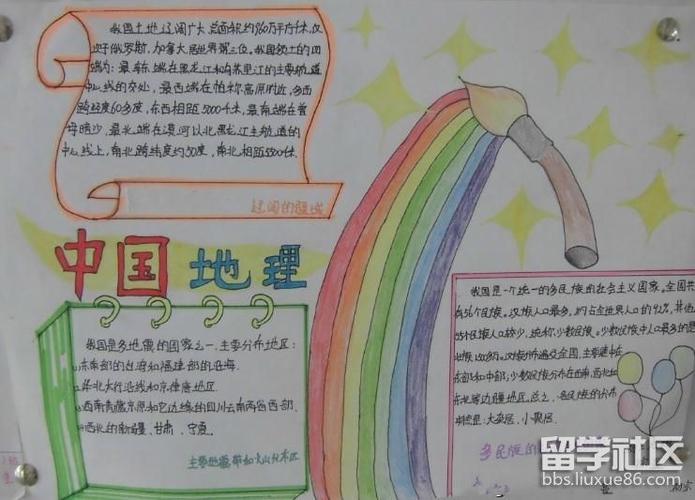 我国土地辽阔广大,总面积约960万平方千米,仅
次于俄罗斯、加拿大,居世界第三位。我国领土的四
端为:最东端在黑龙江和乌苏里江的主航道
中心线的交处,最西端在帕米高原附近,东西
跨经度60多度,东西相距5000千米,最南端在曾
母暗沙,最北端在漠河以北黑龙江主航道的
中心线上,南北跨纬度约50度,南北相距5500千米.
辽阔的疆域
中国地理
我国是多地震的国家之一,主要分布地区:
东南部的台湾和福建部的沿海.
华北太行沿线和京津唐地区.
西南青藏高原和它边缘的四川云南两省西部.
西北的新疆、甘肃、宁夏.
主要地震带和火山分布区
我国是一个统一的多民族的社会主义国家。全国共
有56个民族。汉族人口最多,约占全世界人口的92%,其他
55个民族人口较少,统称少数民族。少数民族中人口最多的是
汉族布遍及全国,主要集中在
东部和中部;少数民族分布在西南,西北和
东北等边疆地区。总之,各民族的分布
特点是:大杂居、小聚居.
多民族的
留学社区
bbs.liuxue86.com